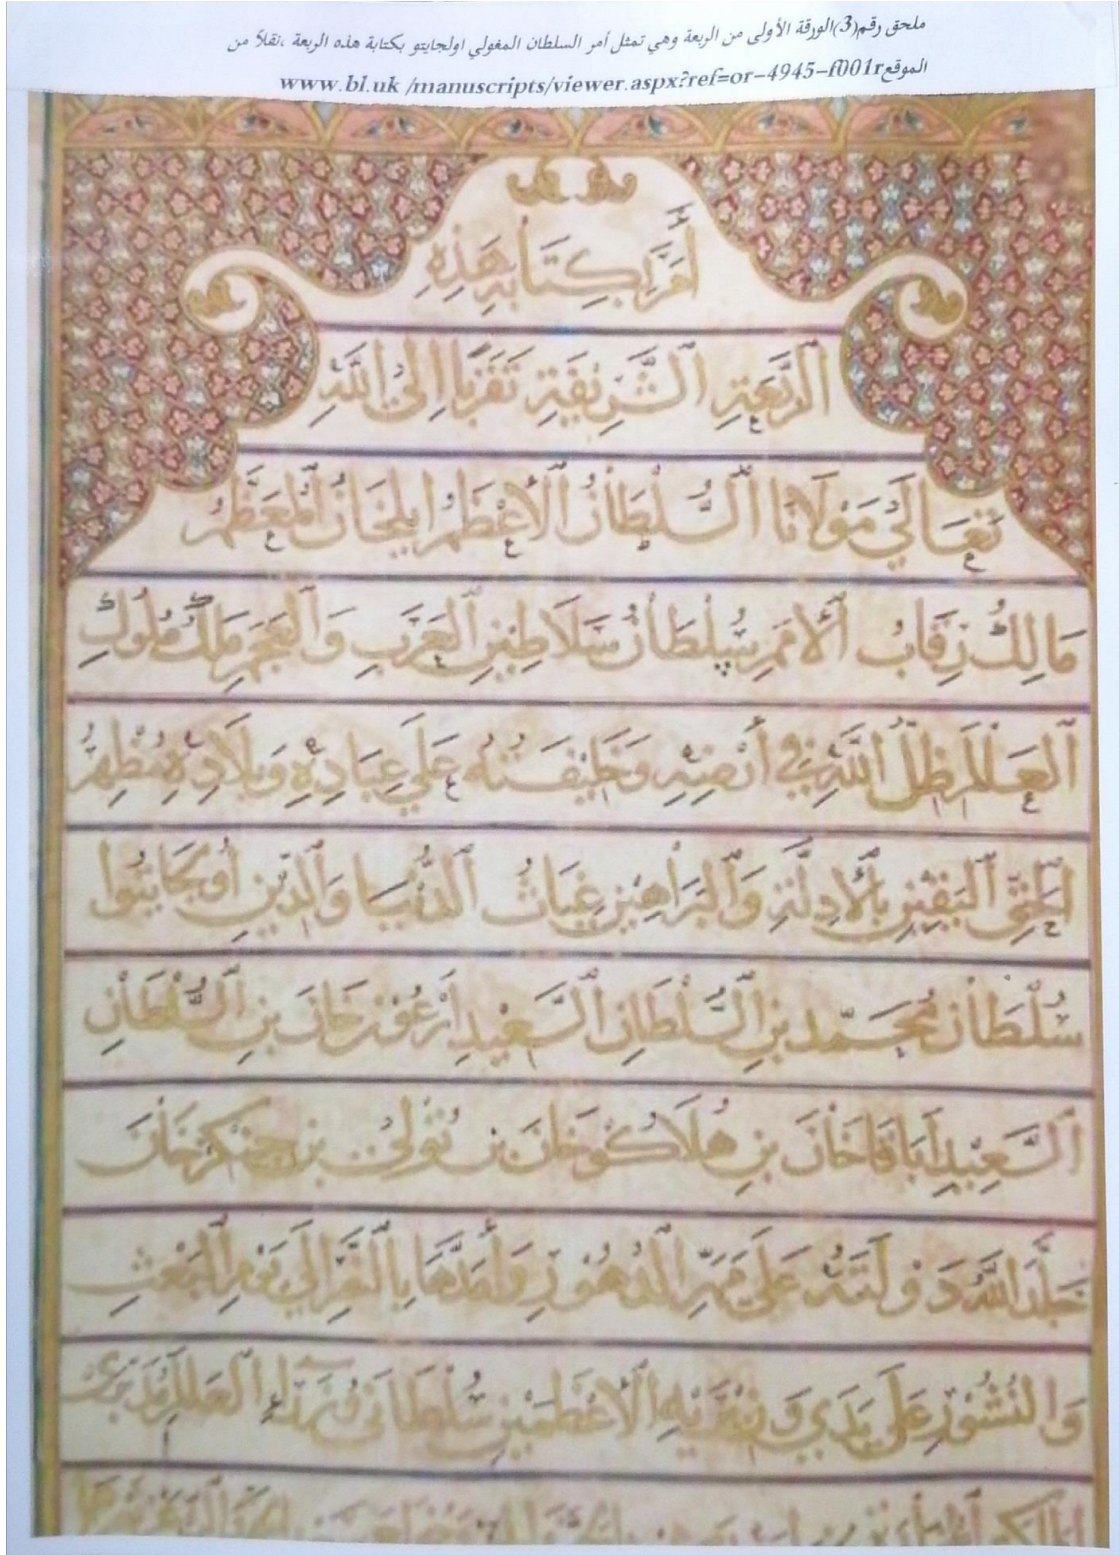 ملحق رقم(3)الورقة الأولى من الربعة وهي تمثل أمر السلطان المغولي اولجايتو بكتابة هذه الربعة ،نقلاً من
الموقعwww.bl.uk /manuscripts/viewer.aspx?ref=or-4945-f001r
أَمَرَ بِكِتَابَةِ هَذِهِ
ٱلرَّبْعَةِ ٱلشَّرِيفَةِ تَقَرُّبًا إِلَى ٱللَّهِ
تَعَالَى مَوْلَانَا ٱلسُّلْطَانُ ٱلْأَعْظَمُ ايلخان ٱلْمُعَظَّمُ
مَالِكُ رِقَابِ ٱلْأُمَمِ سُلْطَانُ سَلَاطِينِ ٱلْعَرَبِ وَٱلْعَجَمِ مَلِكُ مُلُوكِ
ٱلْعَالَمِ ظِلُّ ٱللَّهِ فِي أَرْضِهِ وَخَلِيفَتُهُ عَلَى عِبَادِهِ وَبِلَادِهِ مُظْهِرُ
ٱلْحَقِّ ٱلْيَقِينِ بِٱلْأَدِلَّةِ وَٱلْبَرَاهِينِ غِيَاثُ ٱلدُّنْيَا وَٱلدِّينِ أُولْجَايتُوا
سُلْطَان مُحَمَّد بنِ ٱلسُّلْطَانِ ٱلسَّعِيدِ أَرْغُون خَانَ بنِ ٱلسُّلْطَانِ
ٱلسَّعِيدِ أَبَاقَا خَانَ بنِ هُلَاكُو خَانَ بن تُولى بن جنكز خَانَ
خَلَّدَ ٱللَّهُ دَوْلَتَهُ عَلَى مَمَرِّ ٱلدُّهُورِ وَأَمَدَّهَا بِٱلنَّصْرِ إِلَى يَوْمِ ٱلْبَعْثِ
وَالنُّشُورِ عَلَى يَدَي وَزِيرَيْهِ ٱلْأَعْظَمَيْنِ سُلْطَانَي وُزَرَاءِ ٱلْعَالَمِ